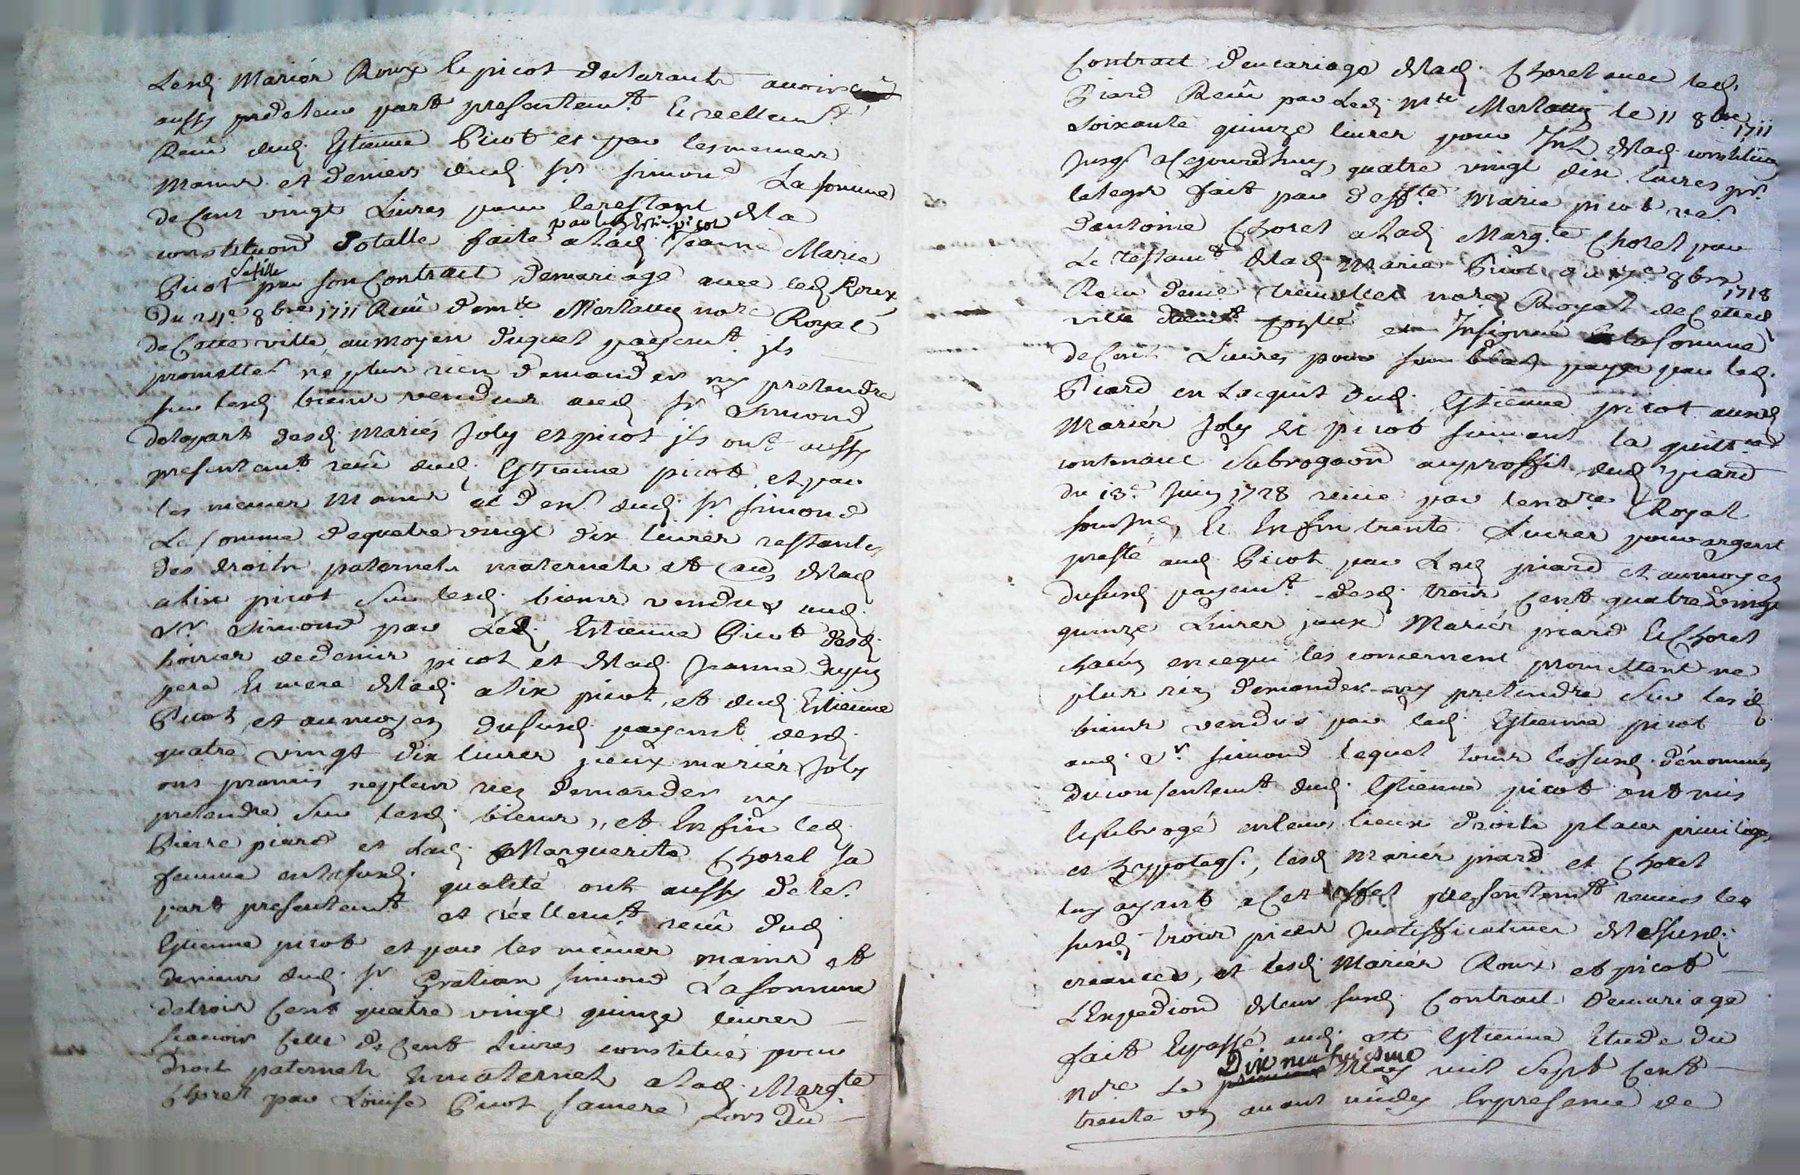 Lesd Mariés Roux & picot declarants avoir
aussy pour leur part presentemt & reellemt
Reçu dud Estienne Picot et par les mesmes
mains et deniers dud Sr Simond La somme
de Cent vingt Livres pour le restant de la
par led Este picot
constitution Totalle faite a lad Jeanne Marie
sa fille
Picot par son Contrat demariage avec led Roux
Du 24e 8bre 1711 Reçu dem Merlany nore Royal
de Cette ville au moyen duquel payemt ils
promettent ne plus rien demander ny pretendre
sur lesd biens vendus aud Sr Simond
de la part desd Mariés Joly et picot ils ont aussy
presentemt reçu dud Estienne picot et par
les mesmes mains et den dud Sr Simond
La somme de quatre vingt dix livres restante
des droits paternels maternels et de lad
alix picot sur lesd biens vendus aud
Sr Simond par Led Estienne Picot desd
hoiries de denis picot et de lad Jeanne
pere & mere de lad alix picot, et dud Estienne
Picot, et au moyen du susd payemt desd
quatre vingt dix livres yceux mariés Joly
ont promis ne plus rien demander ny
pretendre sur lesd biens, et Enfin led
Pierre piard et lad Marguerite Chorel sa
femme en susd qualité ont aussy de leur
part presentemt et réellemt reçu dud
Estienne picot et par les mesmes mains et
deniers dud Sr Gratian Simond La somme
de trois Cent quatre vingt quinze livres
sçavoir Celle de Cent Livres constitué pour
Droit paternels & maternels a lad Margte
Chorel par Louise Picot sa mere Lors du
Contrat demariage de lad Chorel avec led
Piard Reçu par Led Mte Merlany le 11 8bre
1711
soixante quinze livres pour de lad constitution
jusqs aujourdhuy quatre vingt dix livres pr
le legs fait par deffte Marie picot ve
d'antoine Chorel a lad Margte Chorel par
Le testamt de lad Marie Picot du 17e 8bre
1718
Reçu dem nore Royal de Cette
ville La somme
de Cent Livres pour payer par led
Piard en Lacquit dud Estienne picot ausd
Mariés Joly et picot suivant la quitt
contenant subrogaon au proffit dud piard
du 13e Juin 1728 reçue par le nore Royal
soussné, Et Enfin trente Livres pour argent
presté aud Picot par Led piard et au moyen
du susd payemt desd trois Cent quatre vingt
quinze Livres yceux Mariés piard & Chorel
chacun en ce qui les concernent promettent ne
plus rien demander ny pretendre sur lesd
biens vendus par led Estienne picot
aud Sr Simond lequel tous les susd dénommés
du consentemt dud Estienne picot ont mis
& subrogé en leurs lieux droits places privileges
et hypoteqs, lesd Mariés piard et Chorel
luy ayant a cet effet presentemt remis les
susd trois pieces justifficatives de susd
creances, et lesd Mariés Roux et picot
L'Expedion de leur susd Contrat demariage
fait & passé aud St Estienne Etude du
Dix neufviesme
nore Le premier May mil sept Cent
trente un avant midy En presence de